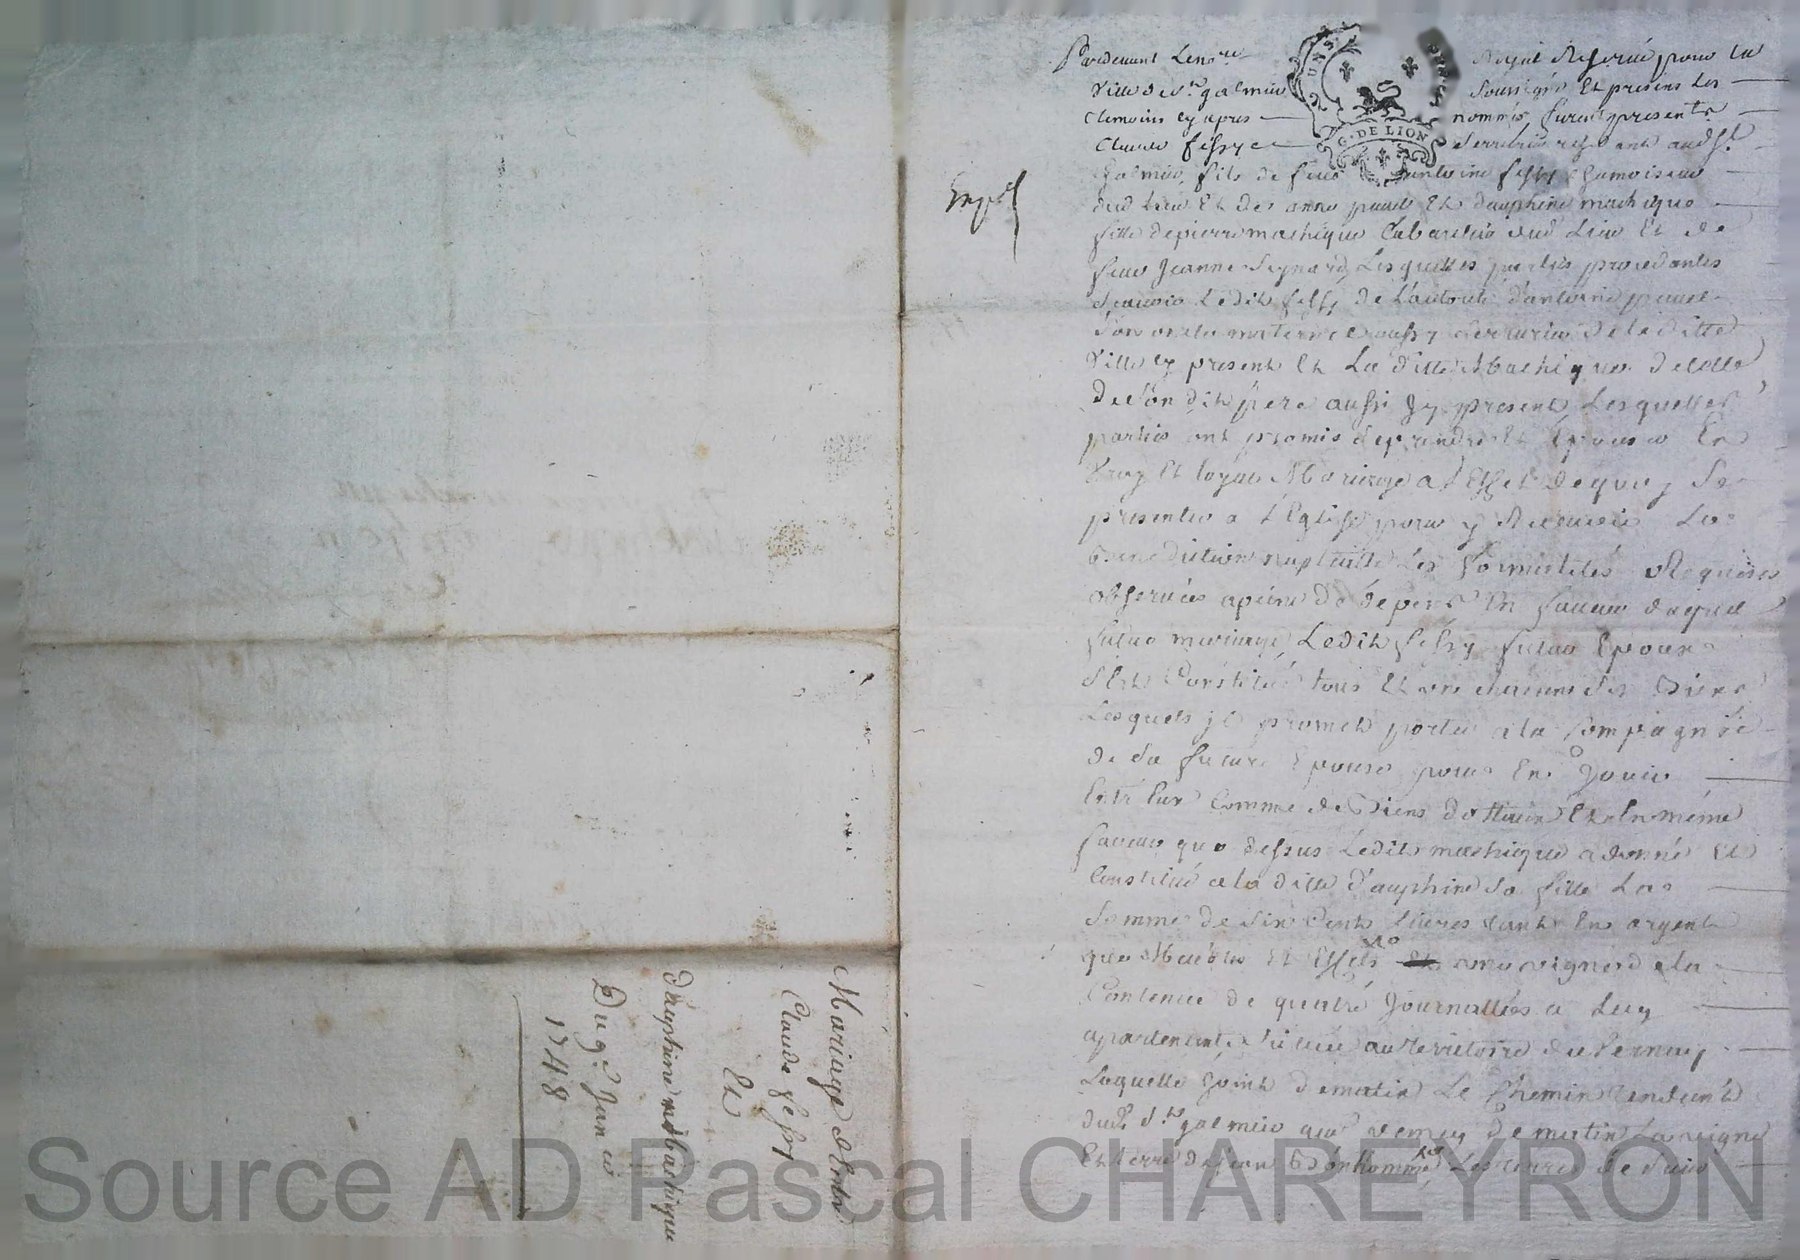 Pardevant Le no.re Royal Reservé pour la
Ville de S.t galmier Soussigné Et presens les
temoins cy apres nommés furent presents
Claude fessy Serrurier residant aud S.t
galmier, fils de feus antoine fessy chamoiseur
dud Lieu Et de anne paule Et dauphine machique
fille de pierre machique Cabartier dud Lieu Et de
feue Jeanne Lesquelles parties procedantes
sçavoir Ledit fessy de L'autorité d'antoine paule
Son oncle maternel aussy Serrurier de laditte
Ville cy present Et La ditte Machique de celle
de Son dit pere aussi Jcy present, Lesquelles
parties ont promis Se prendre Et Epouser En
Vray Et loyal Mariage a L'Effet de quoy Se
presenter a L'Eglise pour y Recevoir La
benediction nuptialle Les formalités Requises
observées a peine de dépens En faveur duquel
futur mariage, Ledit fessy futur Epoux
S'est Constitué tous Et un chacuns Ses Biens
Lesquels jl promet porter a la Compagnie
de Sa future Epouse pour En Jouir
Entr'Eux Comme de Biens dottaux Et En même
faveur que dessus Ledit machique a donné Et
Constitué a la ditte d'auphine Sa fille La
Somme de Six Cent livres tant En argent
que Meubles Et Effets une vigne de la
Contenue de quatre Journallées a Luy
apartenant, Scituée au territoire de
Laquelle Joint de matin Le Chemin tendant
dud S.t galmier de matin La vigne
Et terre de Jean Bonhomme, Les terres de
Exp.é
Mariage d'Entre
Claude fessy
Et
dauphine Machique
Du 9.e Janvier
1748
G. DE LION
Source AD Pascal CHAREYRON